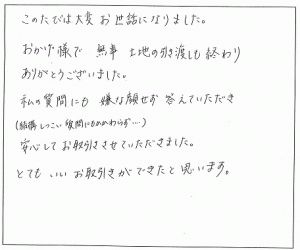 このたびは大変お世話になりました。
おかげ様で 無事 土地の引き渡しも終わり
ありがとうございました。
私の質問にも 嫌な顔せず 答えていただき
(結構しつこい質問にもかかわらず…)
安心してお取引きさせていただきました。
とても いい お取引きができたと思います。